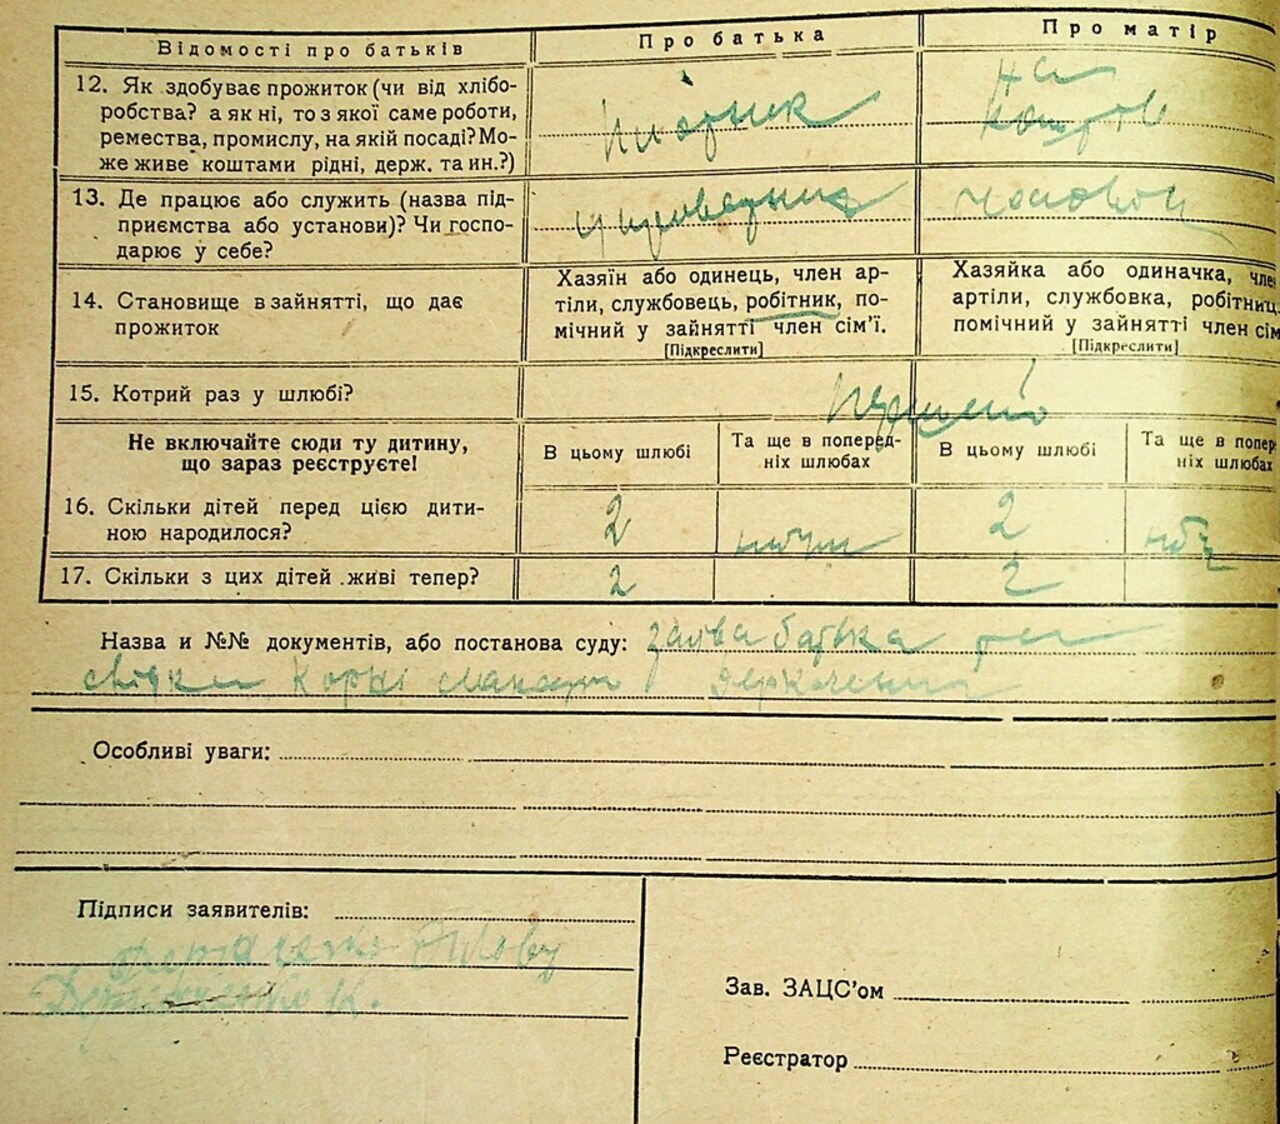 Відомості про батьків
Про батька
Про матір
12. Як здобуває прожиток (чи від хлібо-
робства? а як ні, то з якої саме роботи,
ремества, промислу, на якій посаді? Мо-
же живе коштами рідні, держ. та ин.?)
на
коштові
13. Де працює або служить (назва під-
приємства або установи)? Чи госпо-
дарює у себе?
14. Становище в зайнятті, що дає
прожиток
Хазяїн або одинець, член ар-
тіли, службовець, робітник, по-
мічний у зайнятті член сім'ї.
[Підкреслити]
Хазяйка або одиначка, член
артіли, службовка, робітниц
помічний у зайнятті член сім
[Підкреслити]
15. Котрий раз у шлюбі?
Не включайте сюди ту дитину,
що зараз реєструєте!
В цьому шлюбі
Та ще в поперед-
ніх шлюбах
В цьому шлюбі
Та ще в попер
ніх шлюбах
16. Скільки дітей перед цією дити-
ною народилося?
2
2
17. Скільки з цих дітей живі тепер?
2
2
Назва и №№ документів, або постанова суду: заява батька та
свідки
Особливі уваги:
Підписи заявителів:
Зав. ЗАЦС'ом
Реєстратор